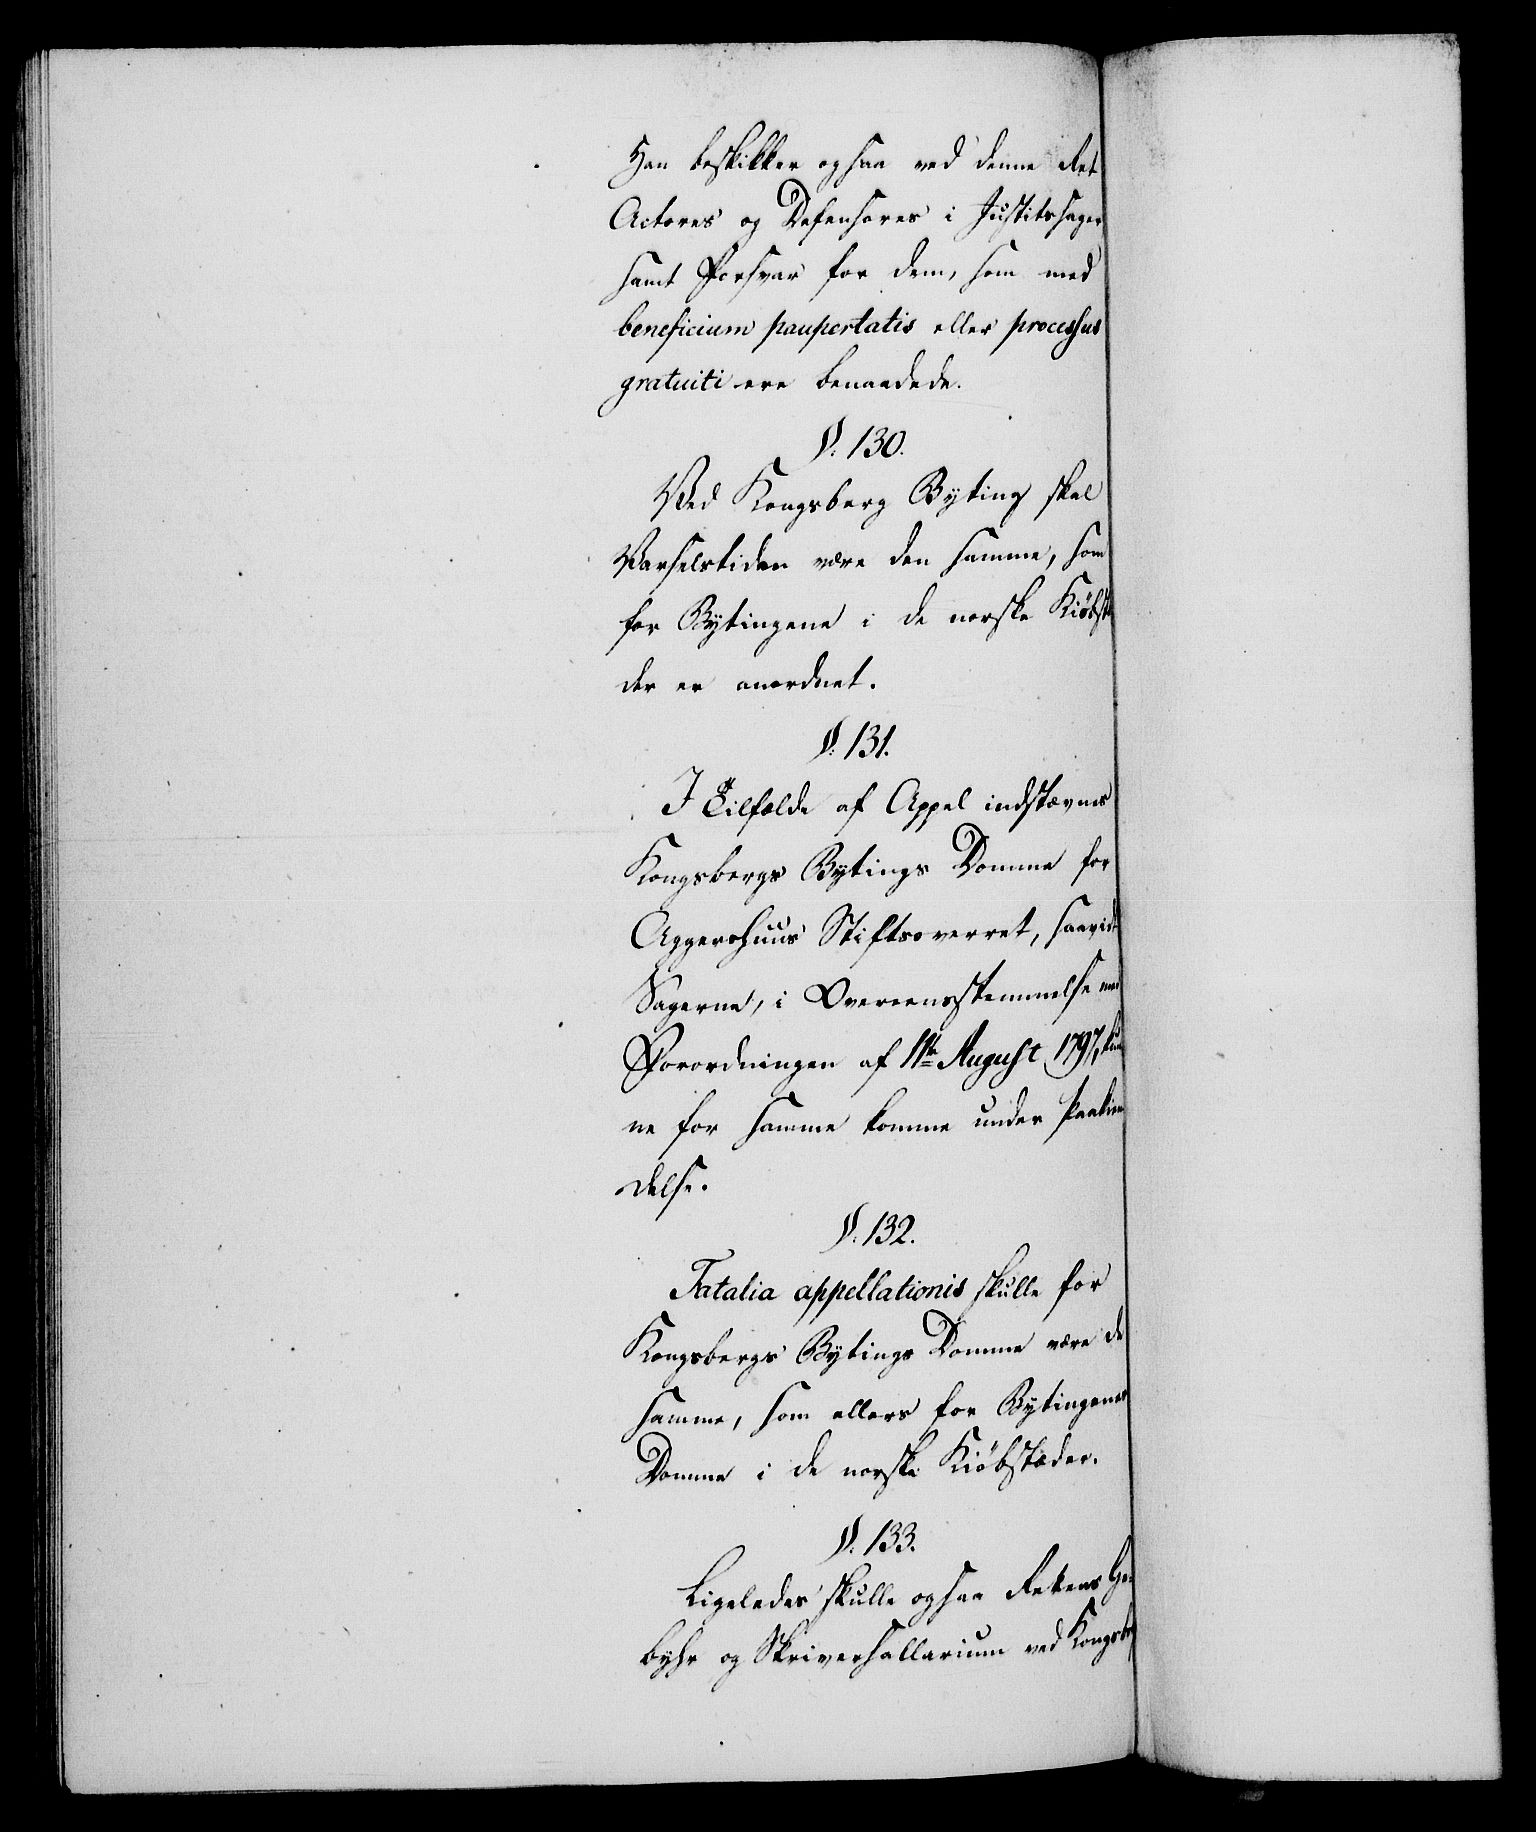 Han beskikker ogsaa ved denne Ret
Actores og Defensores i Justitssager
samt Forsvar for dem, som med
beneficium paupertatis eller processus
gratuiti ere benaadede.
§. 130.
Ved Kongsberg Byting skal
Varselstiden være den samme, som
for Bytingene i de norske Kiøbstæ
der er anordnet.
§. 131.
I Tilfælde af Appel indstævnes
Kongsbergs Bytings Domme for
Aggershuus Stiftsoverret, saavidt
Sagerne, i Overeensstemmelse med
Forordningen af 11te August 1797, kun
ne for samme komme under Paakien
delse.
§. 132.
Fatalia appellationis skulle for
Kongsbergs Bytings Domme være de
samme, som ellers for Bytingenes
Domme i de norske Kiøbstæder.
§. 133.
Ligeledes skulle ogsaa Rettens Ge-
byhr og Skriversallarium ved Kongsberg